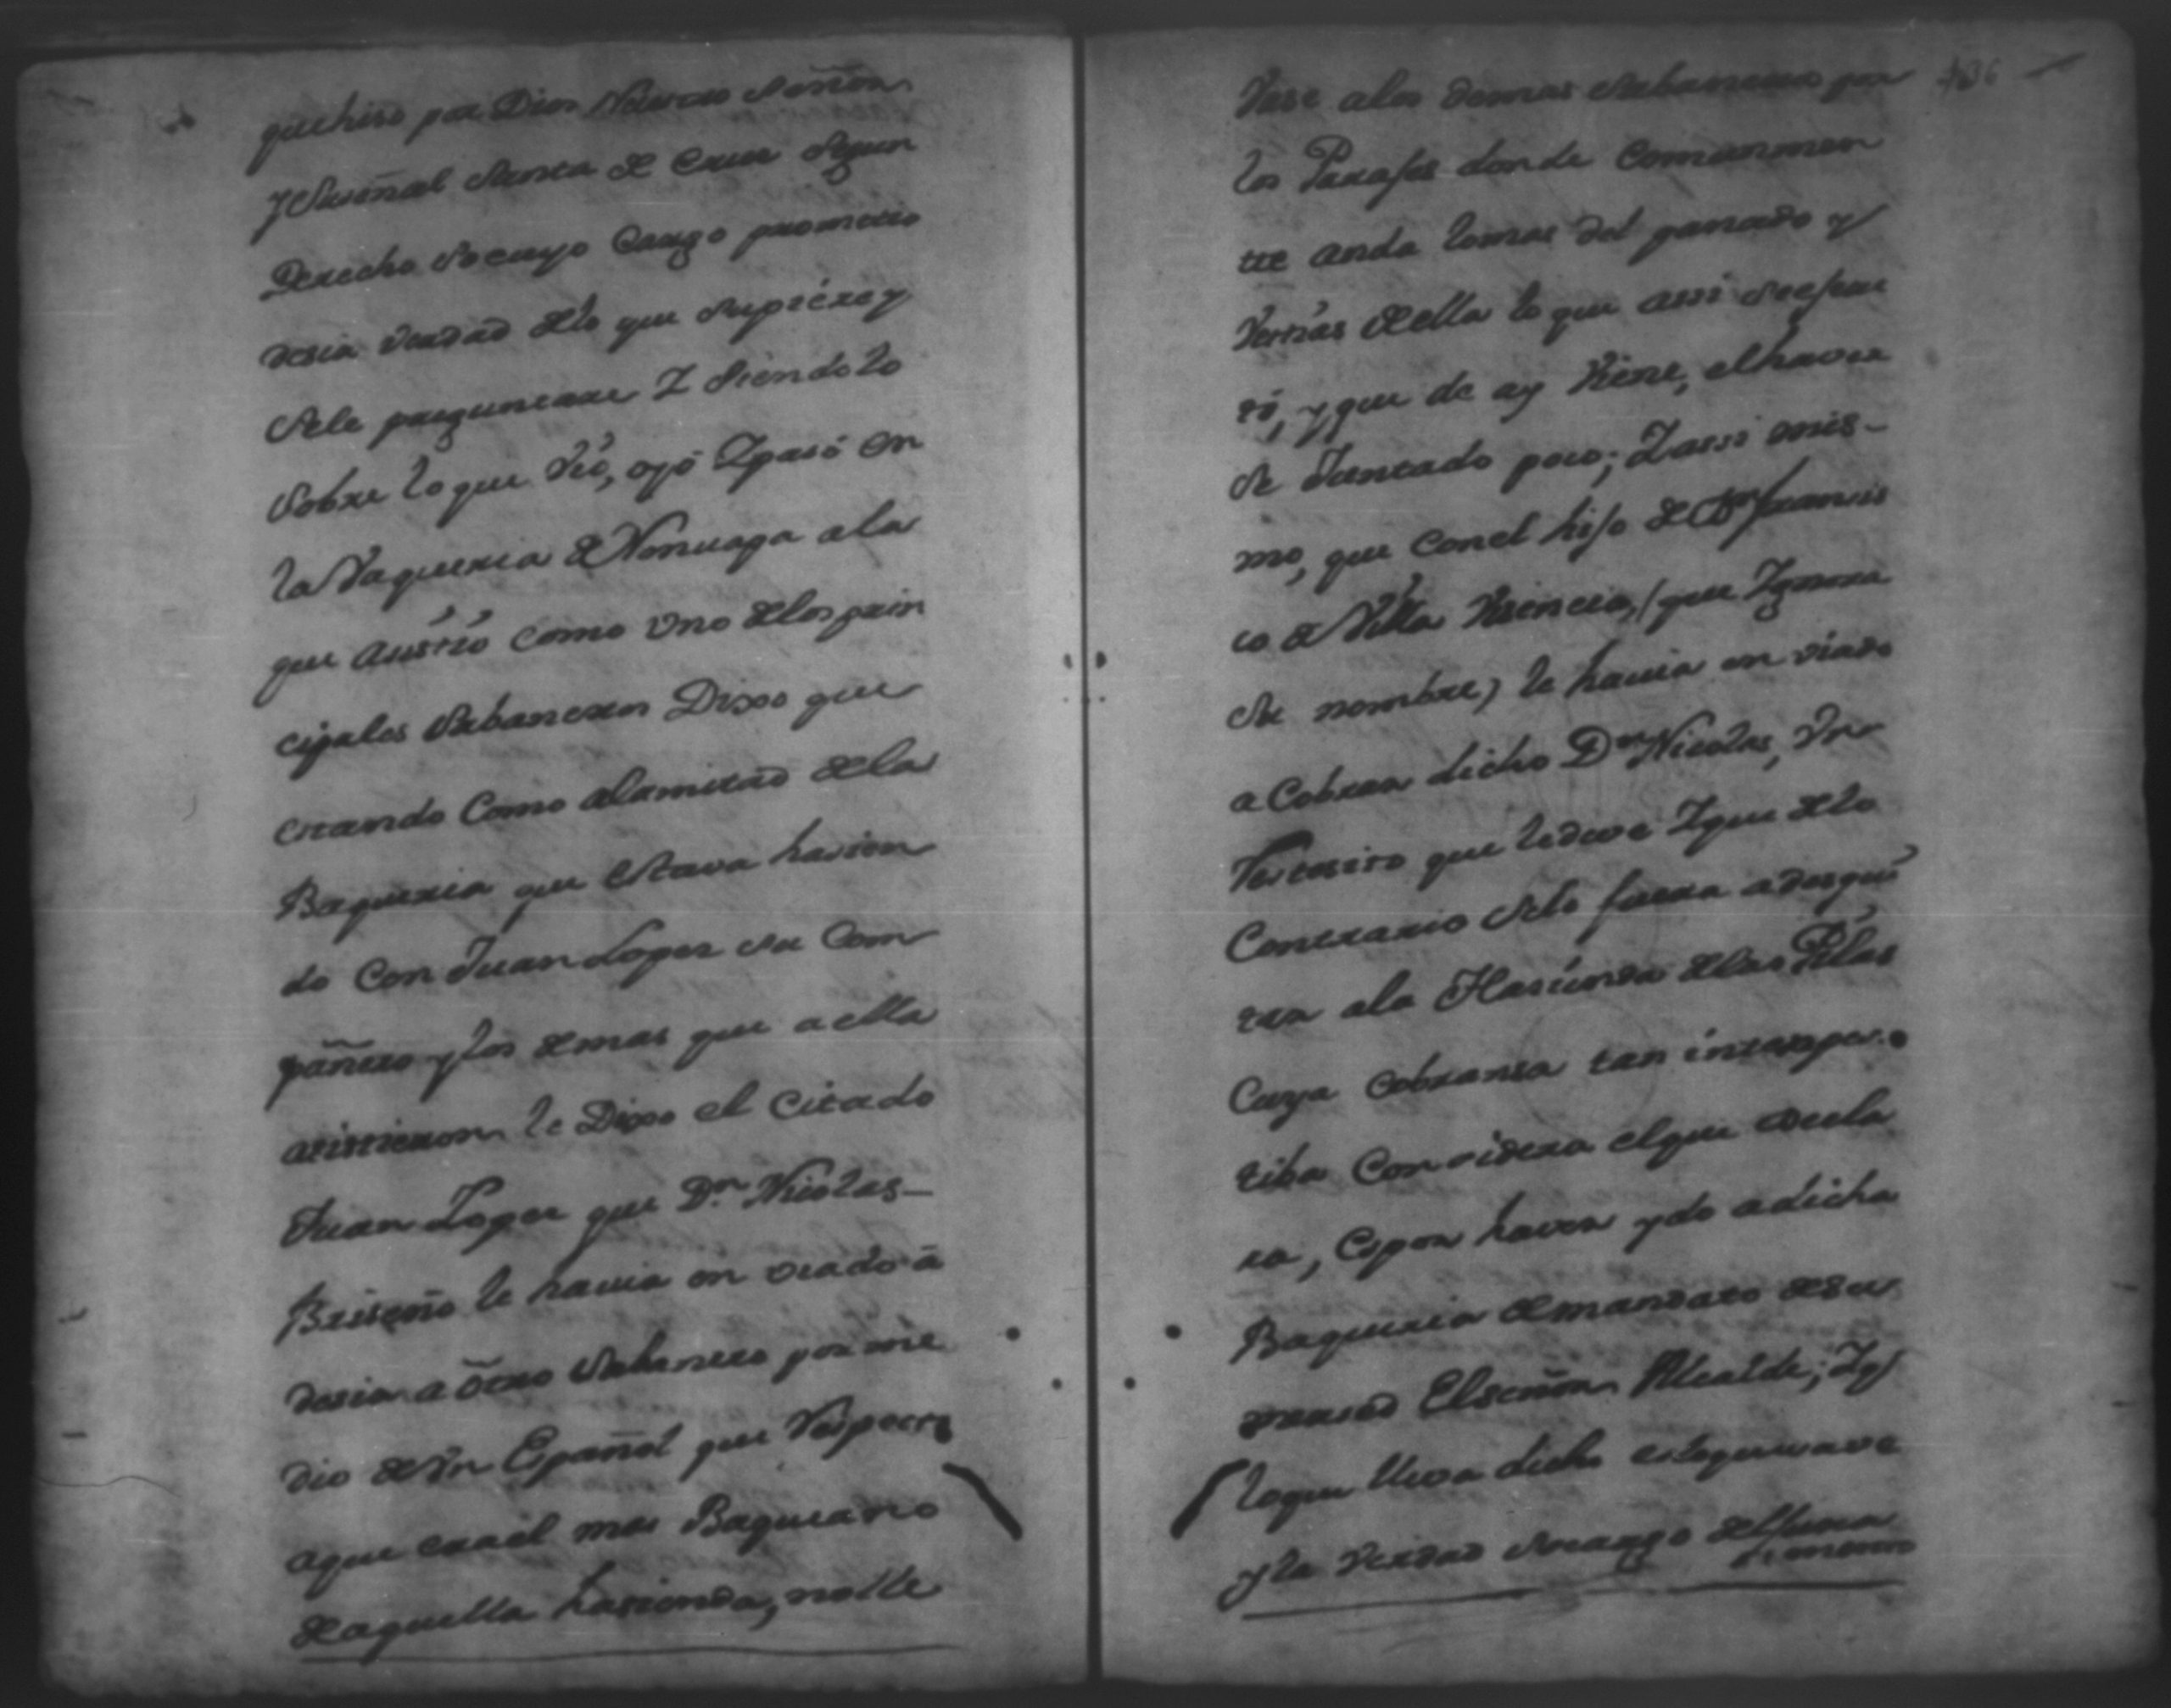 que hiso por Dios Nuestro señor
y su señal Santa de Cruz segun
Derecho so cuyo Cargo prometio
desir verdad delo que supiére y
sele preguntare Y siendolo
sobre lo que vió, oyó Ypasó en
la Vaqueria de Nonuapa ala
que asistió como Uno delos prin
cipales sabaneros Dixo que
estando Como ala mitad dela
Baqueria que estava hacien
do Con Juan Lopes su Com
pañero y los demas que a ella
asistieron le Dixo el Citado
Juan Lopez que Dn. Nicolas
Briseño le havia en viado â
desir a ôtro sabanero por me
dio de Vn Español que respecto
aque era él mas Baqueano
de aquella hasienda, no lle
vase alos demas sabaneros por
los Parajes donde Comunmen
te anda lomas del ganado y
de ella lo que assi se
tó, y que de ay viene, el haver
se Juntado poco; Y assi mis-
mo, que Con el hijo de Dn francis
co de Villa Visencio, (que Ygnora
su nombre) le havia en viado
a Cobrar dicho Dn Nicolas, Vn
que le deve Y que delo
Contrario selo fuera a desqui
tar ala Hasienda delas Pilas
Cuya Cobransa tan intempes
tiba Considera el que decla
ra, es por haver ydo a dicha
Baqueria de mandato de su
merced El señor Alcalde; Y q
lo que lleva dicho es lo que save
y la verdad so cargo del Jura
mento